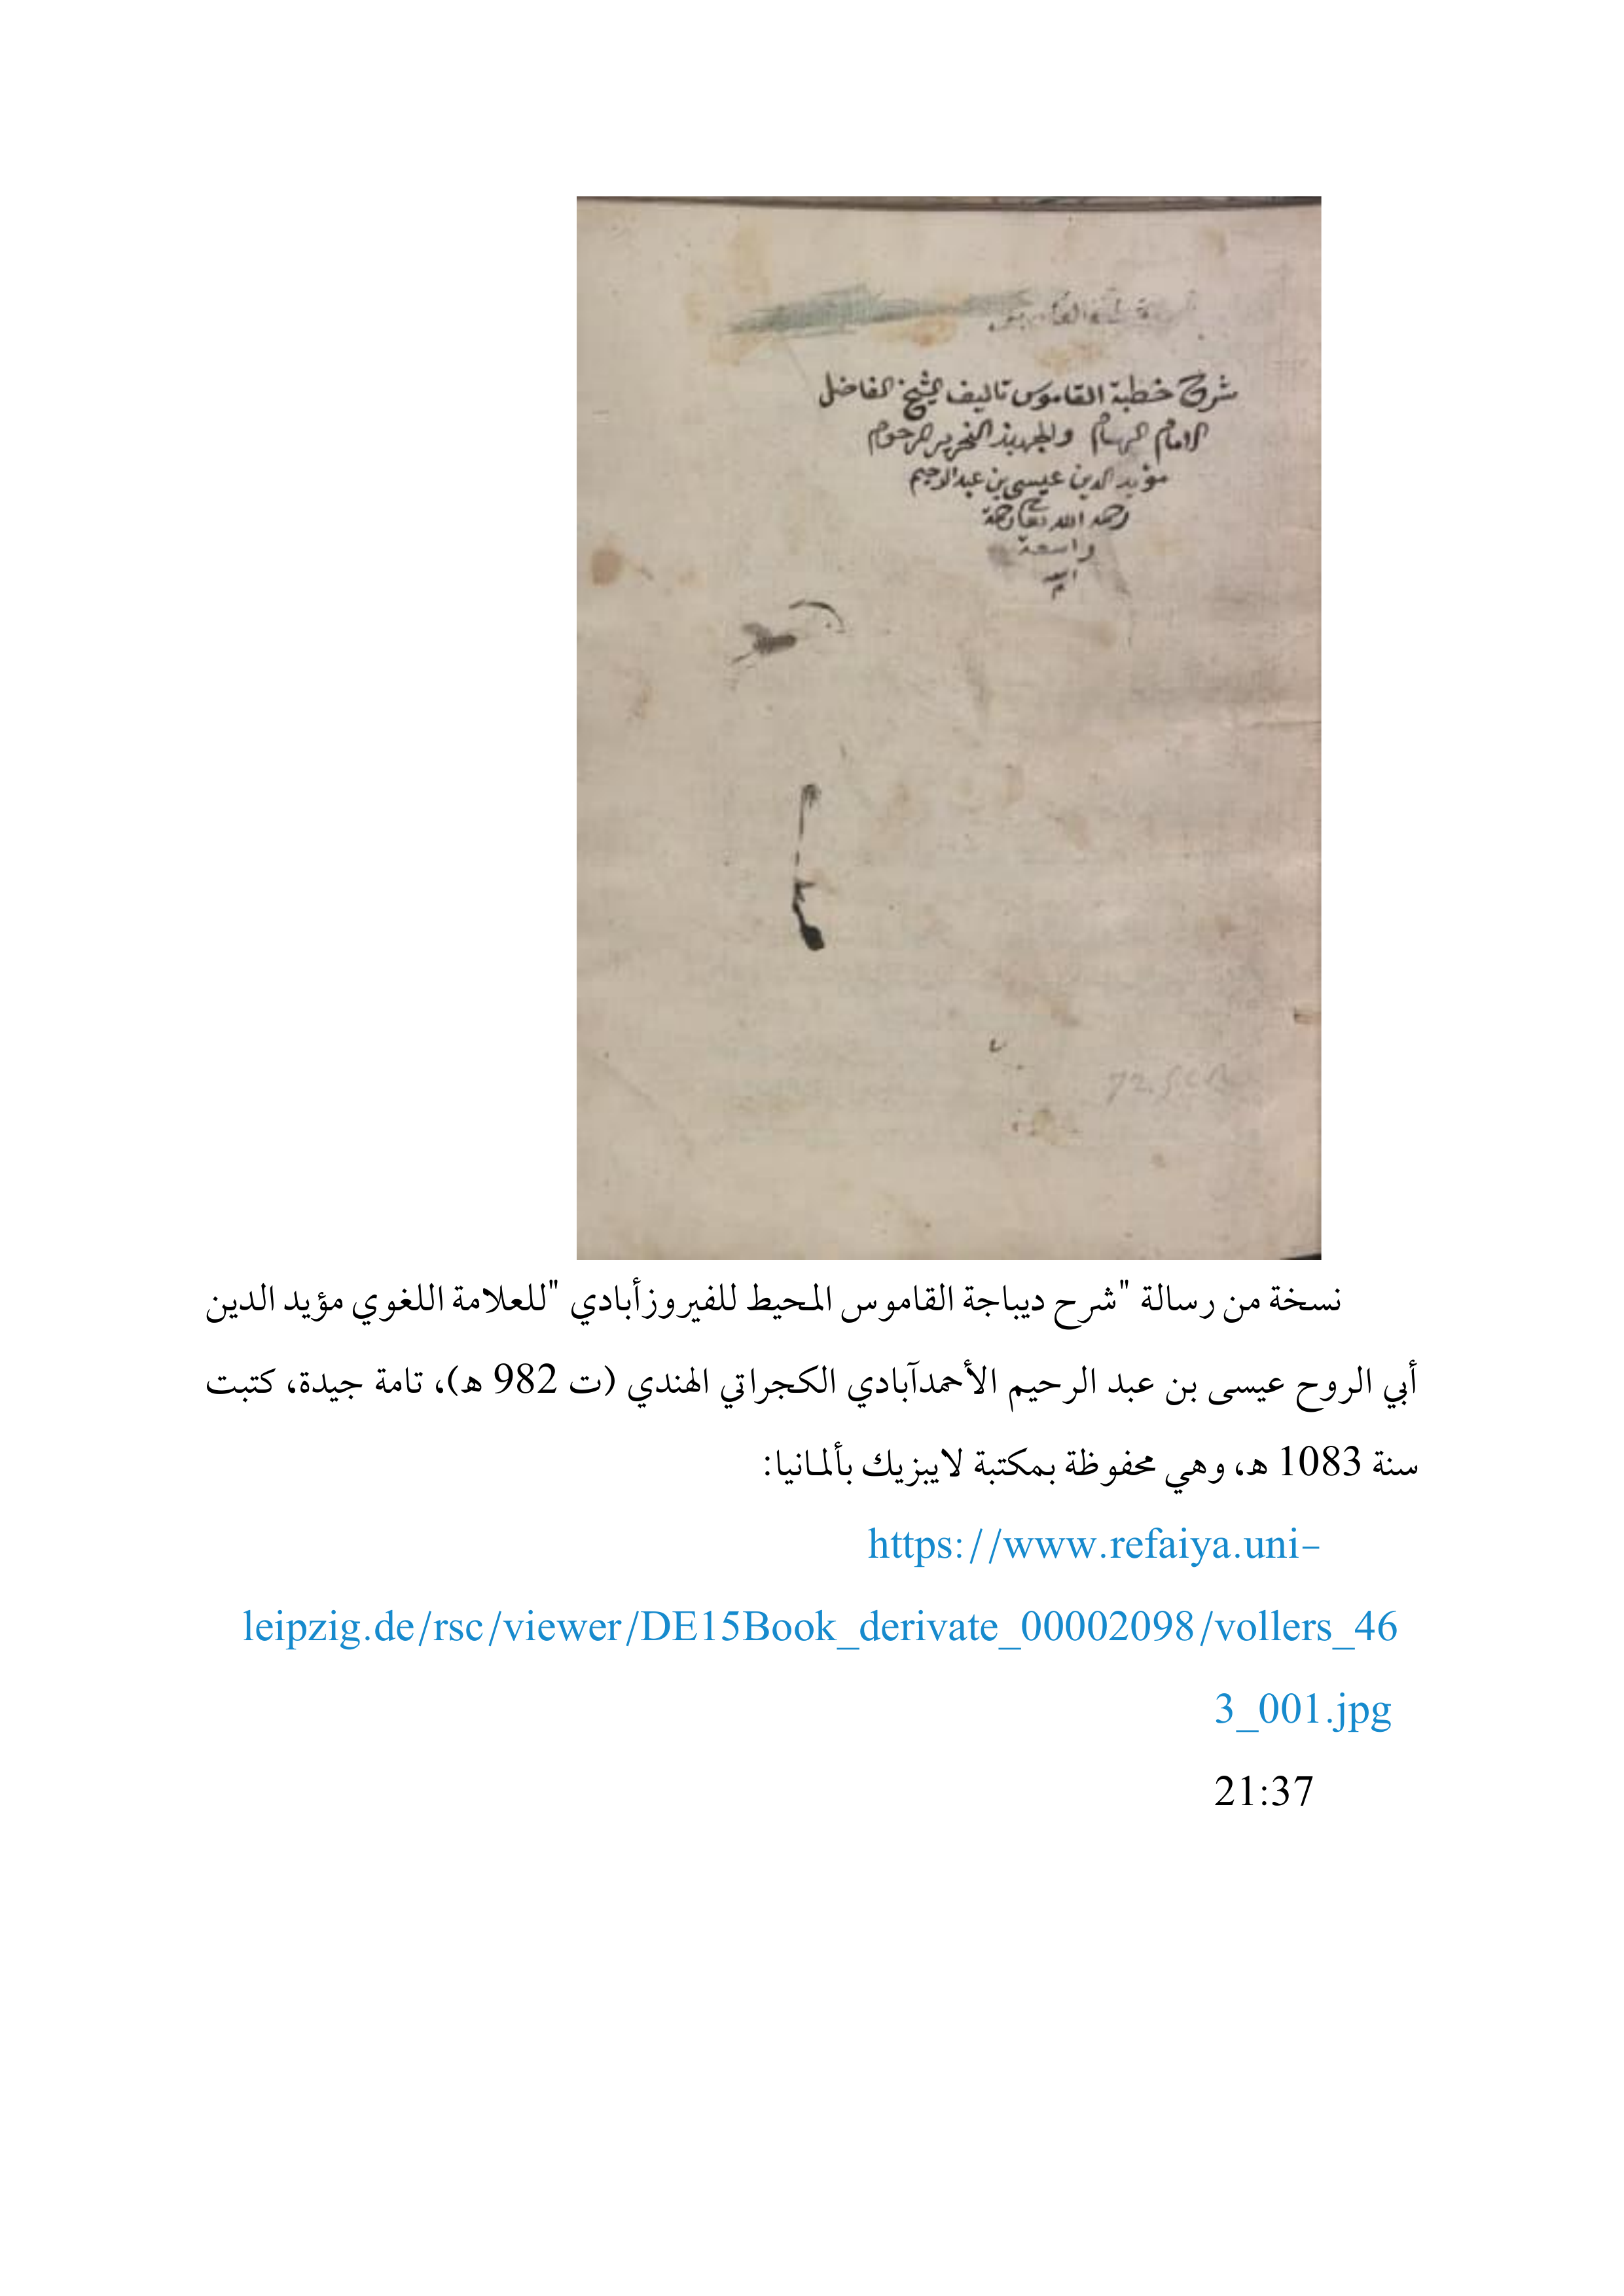 شرح خطبة القاموس تاليف الشيخ الفاضل
الامام الهمام والجهبذ النحرير المرحوم
مؤيد الدين عيسى بن عبد الرحيم
رحمه الله تعالى رحمة
واسعة
نسخة من رسالة "شرح ديباجة القاموس المحيط للفيروزأبادي "للعلامة اللغوي مؤيد الدين
أبي الروح عيسى بن عبد الرحيم الأحمدآبادي الكجراتي الهندي (ت 982 ه)، تامة جيدة، كتبت
سنة 1083 ه، وهي محفوظة بمكتبة لايبزيك بألمانيا:
https://www.refaiya.uni-
leipzig.de/rsc/viewer/DE15Book_derivate_00002098/vollers_46
3_001.jpg
21:37